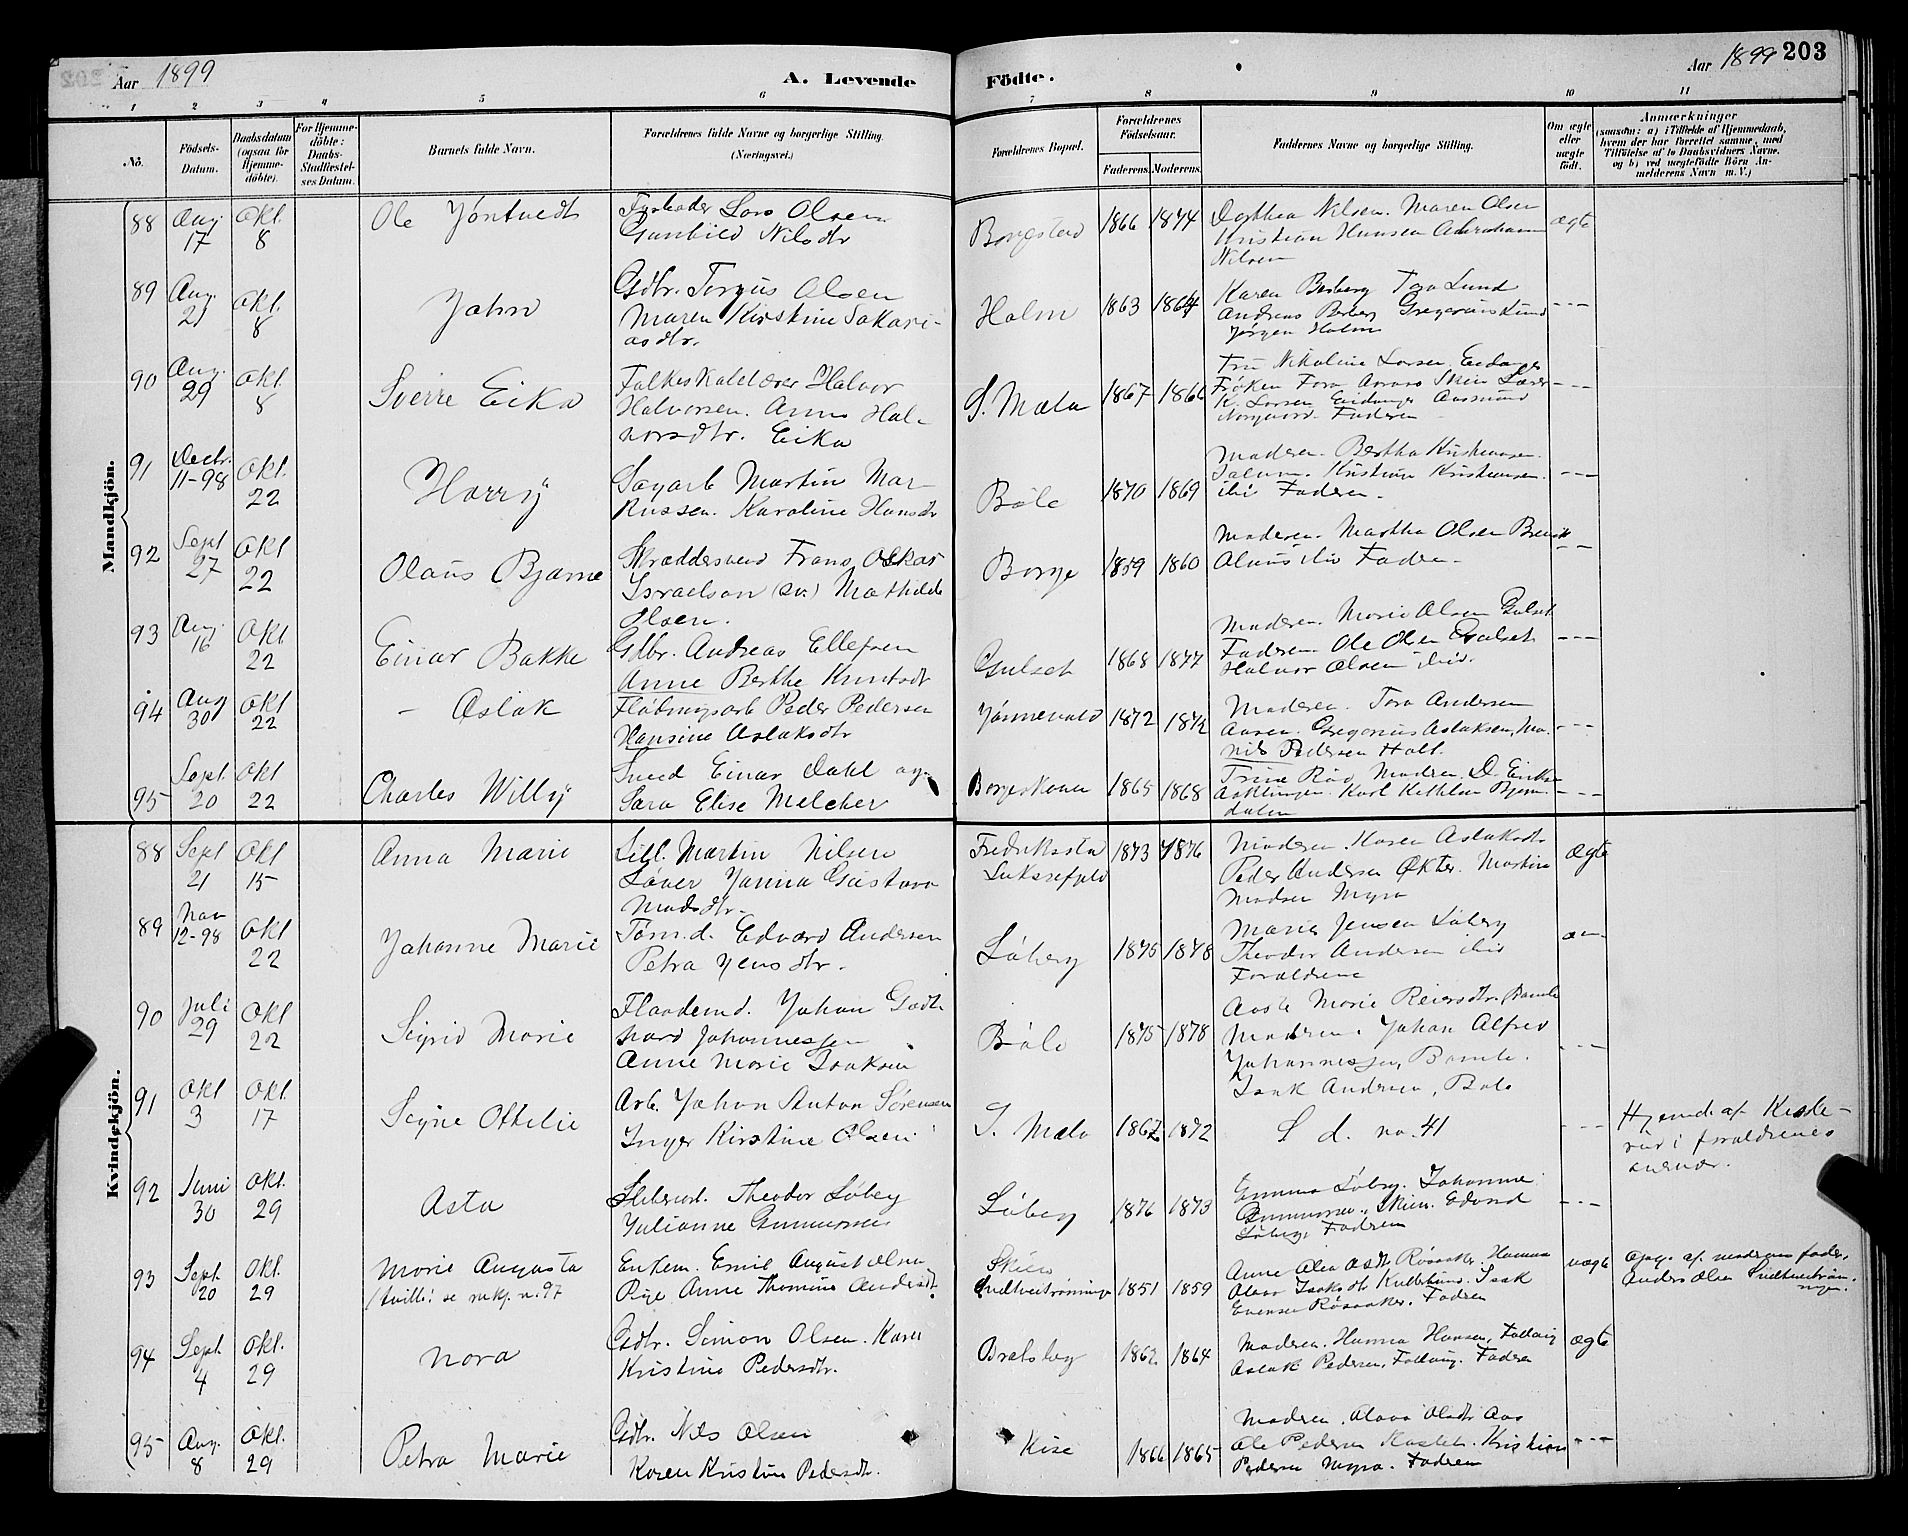 Aar 1899
A. Levende
Födte.
Aar 1899
203
1 2 3 4 5 6 7 8 9 10 11
No.
Födsels-
Datum.
Daabsdatum
(ogsaa for
Hjemme-
döbte).
For Hjemme-
döbte:
Daabs-
Stadfæstel-
ses Datum.
Barnets fulde Navn.
Forældrenes fulde Navne og borgerlige Stilling.
(Næringsvei.)
Forældrenes Bopæl.
Forældrenes
Födselsaar.
Faderens. Moderens.
Faddernes Navne og borgerlige Stilling.
Om ægte
eller
uægte
født.
Anmærkninger
(saasom: a) i Tilfælde af Hjemmedaab,
hvem der har forrettet samme, med
Tilföielse af to Daabsvidners Navne,
og b) ved uægtefödte Börn An-
melderens Navn m. V.)
Mandkjön.
88 Aug. 17 Okt. 8
Ole
Lars Olsen
Gunhild Nilsdtr
Borgestad 1866 1874
Dorthea Nilsen. Maren Olsen
Kristian Hansen Abraham
Nilsen
ægte
89 Aug. 21 Okt. 8
John
Gdbr. Torgus Olsen
Maren Kirstine Sakari-
asdtr.
Holm 1863 1864
Karen Berberg Tora Lund
Andreas Berberg Gregorius Lund
Jørgen Holm
---
90 Aug. 29 Okt. 8
Sverre Eika
Folkeskolelærer Halvor
Halvorsen. Anne Hal-
vorsdtr. Eika
S. Mæla 1867 1866
Fru Nikoline Larsen Eidanger
Frøken Tora Skien Lærer
K. Larsen Eidanger Aasmund
Norgaard. Faderen
---
91 Decbr. 11-98 Okt. 22
Harry
Sagarb Martin Mar-
kussen. Karoline Hansdtr
Bøle 1870 1869
Moderen. Bertha Kristiansen.
Kristiansen.
ibid Faderen.
---
92 Sept 27 Okt 22
Olaus Bjarne
Skræddersvend Frans Oskar
Israelson (sv.) Mathilde
Olsen.
Borge 1859 1860
Moderen. Martha Olsen
Olaus ibid Faderen
---
93 Aug. 16 Okt 22
Einar Bakke
Gdbr. Andreas Ellefsen
Anne Berthe Knutsdtr
Gulset 1868 1877
Moderen. Marie Olsen Gulset
Faderen Ole Olsen Gulset
Halvor Olsen ibid.
---
94 Aug 30 Okt 22
- Aslak
Fløtningsarb Peder Pedersen
Hansine Aslaksdtr
Jønnevald 1872 1872
Moderen. Tora Andersen
Gregorius Aslaksen,
Pedersen Holt.
---
95 Sept. 20 Okt 22
Charles Willy
Smed Einar Dahl og
Sara Elise Melcher
1865 1868
Moderen. D. Eriksen
Karl Bjørn-
dalen
---
Kvindekjön.
88 Sept 21 Okt 15
Anna Marie
Martin Nilsen
Janna Gustava
Madsdtr.
Fredriksstad
Luksefjeld
1873 1876
Moderen. Karen Aslaksdtr
Peder Andersen Økter. Martin
Madsen Myra
Ægte
89 Nov 12-98 Okt 22
Johanne Marie
Tømd. Edvard Andersen
Petra Jensdtr.
Løberg 1875 1878
Maria Jensen Løberg
Theodor Andersen ibid
Forældrene
90 Juli 29 Okt 22
Sigrid Marie
Johan Godt-
hard Johannessen
Anne Marie Isaksen
Bøle 1875 1878
Aaste Marie Reiersdtr. Bamle
Moderen. Johan Alfred
Johannessen, Bamle.
Isak Andersen, Bøle
---
91 Okt 3 Okt. 17
Signe Othilie
Arb. Johan Anton Sørensen
Inger Kirstine Olsen
S. Mæla 1867 1872
S d. no. 41
---
Hjemd. af Kirke-
i forældrenes
92 Juni 30 Okt. 29
Asta
Theodor Løberg
Julianne Gunnersen
Løberg 1876 1873
Emma Løberg, Johanne
Gunnersen, Skien. Edvard
Løberg, Faderen
---
93 Sept. 20 Okt. 29
Marie Augusta
(tvilling: se mkj. n. 97
Enkem. Emil August Olsen
Anne Thomine Andersdtr
Skien
1851 1859
Anne Olea Røsaaker. Hanna
Isaksdtr Isak
Evensen Røsaaker. Faderen
uægte
Opg. af moderens fader,
Anders Olsen
94 Sept. 4 Okt. 29
Nora
Gdbr. Simon Olsen. Karen
Kristine Pedersdtr.
Bratsberg 1862 1864
Moderen. Hanna Hansen, Follaug
Aslak Pedersen, Follaug. Faderen
ægte
95 Aug. 8 Okt. 29
Petra Marie
Gdbr. Nils Olsen
Karen Kristine Pedersdtr.
Kise 1866 1865
Moderen, Olava Olsdtr Aas
Ole Pedersen Kristian
Pedersen Myra. Faderen
---